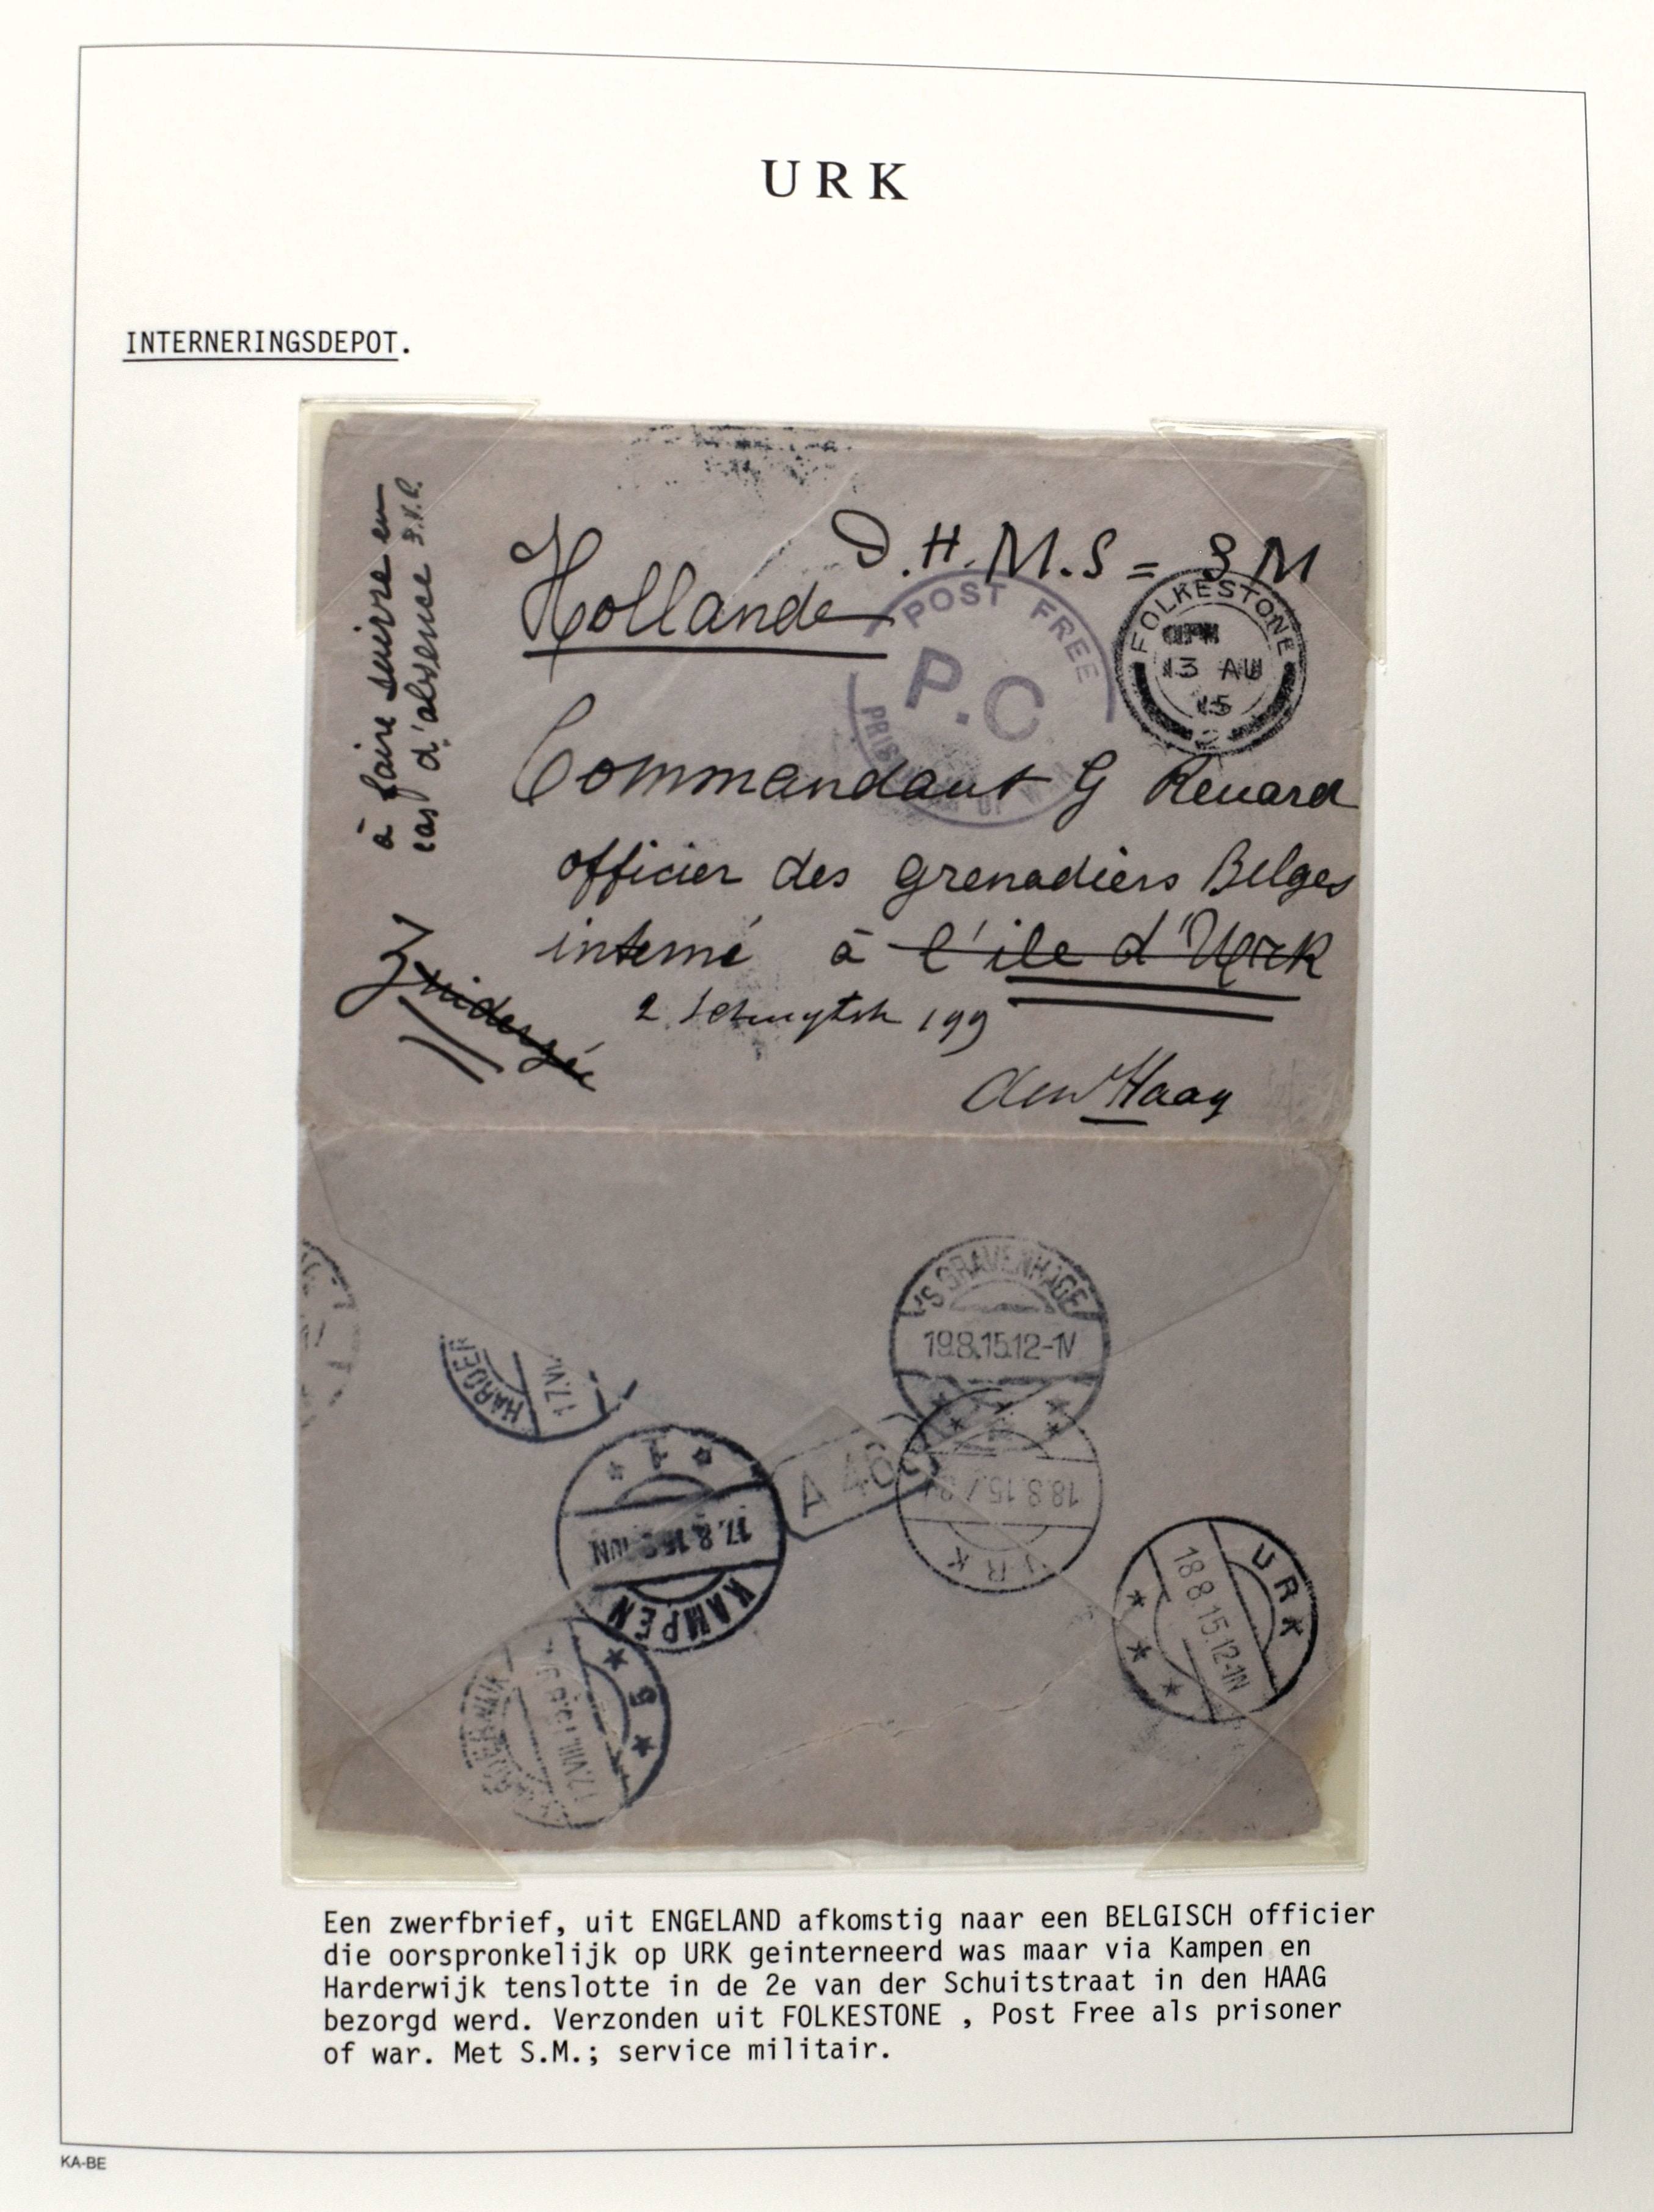 URK
INTERNERINGSDEPOT.
à faire suivre en
cas d'absence S.V.P.
D.H.M.S = SM
Hollande
POST FREE
P.C.
PRISONERS OF WAR
FOLKESTONE
13 AU
15
2
Commandant G Renard
officier des grenadiers Belges
interné à l'ile d'Urk
Zuiderzée
2 Schuytstr 199
den Haag
'S GRAVENHAGE
19.8.15.12-1N
HARDER
17.VII
KAMPEN
17.8.15
1
A 46
URK
18.8.15
URK
18.8.15.12-1N
17.VIII.15
5
Een zwerfbrief, uit ENGELAND afkomstig naar een BELGISCH officier
die oorspronkelijk op URK geinterneerd was maar via Kampen en
Harderwijk tenslotte in de 2e van der Schuitstraat in den HAAG
bezorgd werd. Verzonden uit FOLKESTONE , Post Free als prisoner
of war. Met S.M.; service militair.
KA-BE